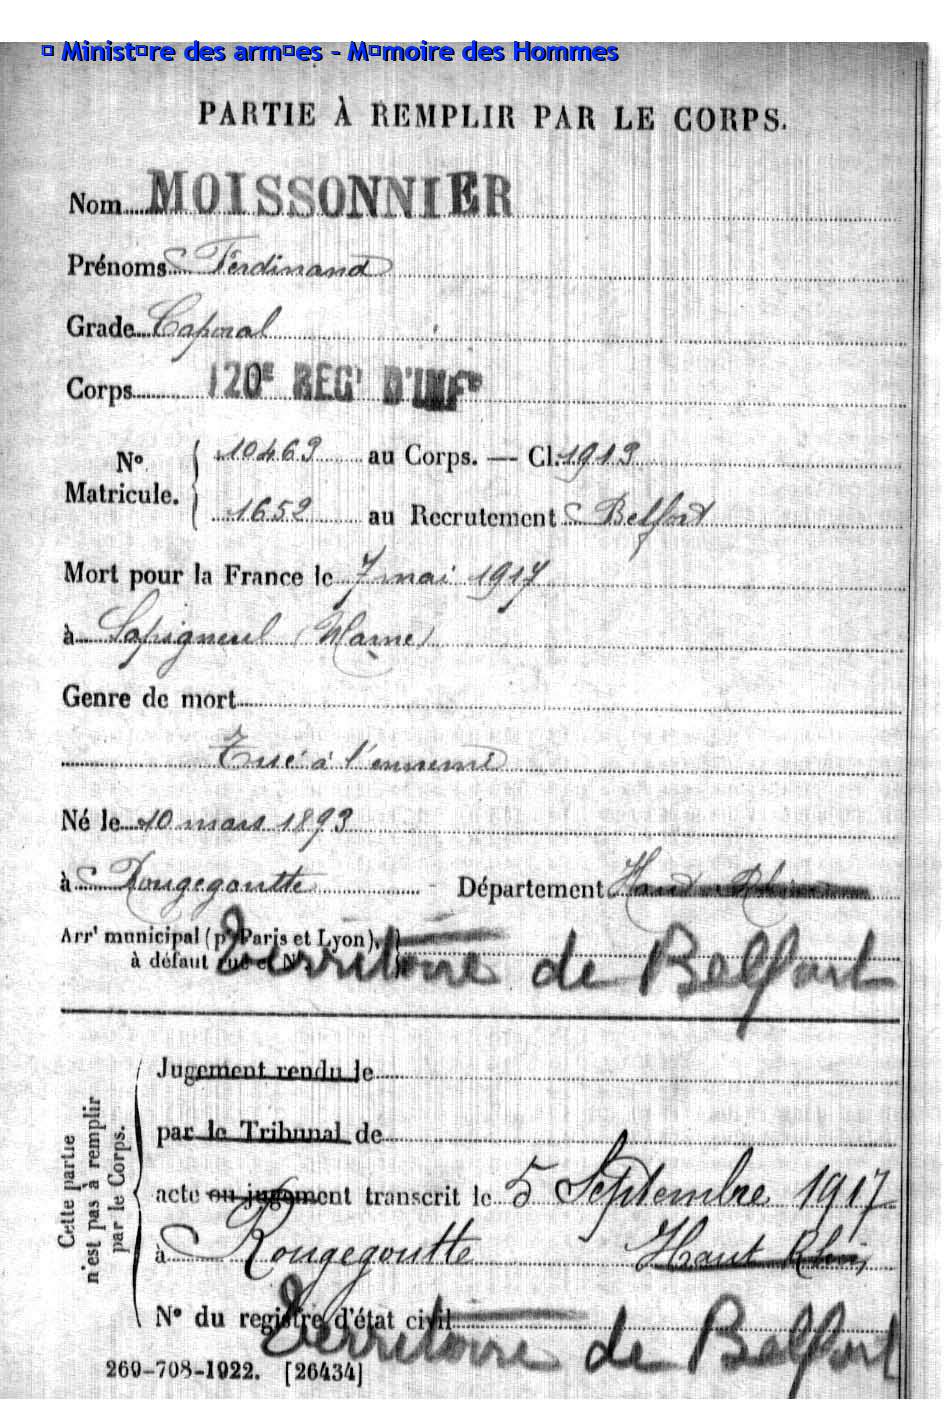 ▯ Minist▯re des arm▯es - M▯moire des Hommes
PARTIE À REMPLIR PAR LE CORPS.
Nom MOISSONNIER
Prénoms Ferdinand
Grade Caporal
Corps 120E REGT D'INFIE
No Matricule. 10463 au Corps. — Cl. 1913
1652 au Recrutement Belfort
Mort pour la France le 7 mai 1917
à Sapigneul (Marne)
Genre de mort
Tué à l'ennemi
Né le 10 mars 1893
à Rougegoutte Département Haut Rhin
Arrt municipal (pr Paris et Lyon),
à défaut rue et No.
Territoire de Belfort
Cette partie n'est pas à remplir par le Corps.
Jugement rendu le
par le Tribunal de
acte ou jugement transcrit le 5 Septembre 1917
à Rougegoutte Haut Rhin
No du registre d'état civil
Territoire de Belfort
269-708-1922. [26434]